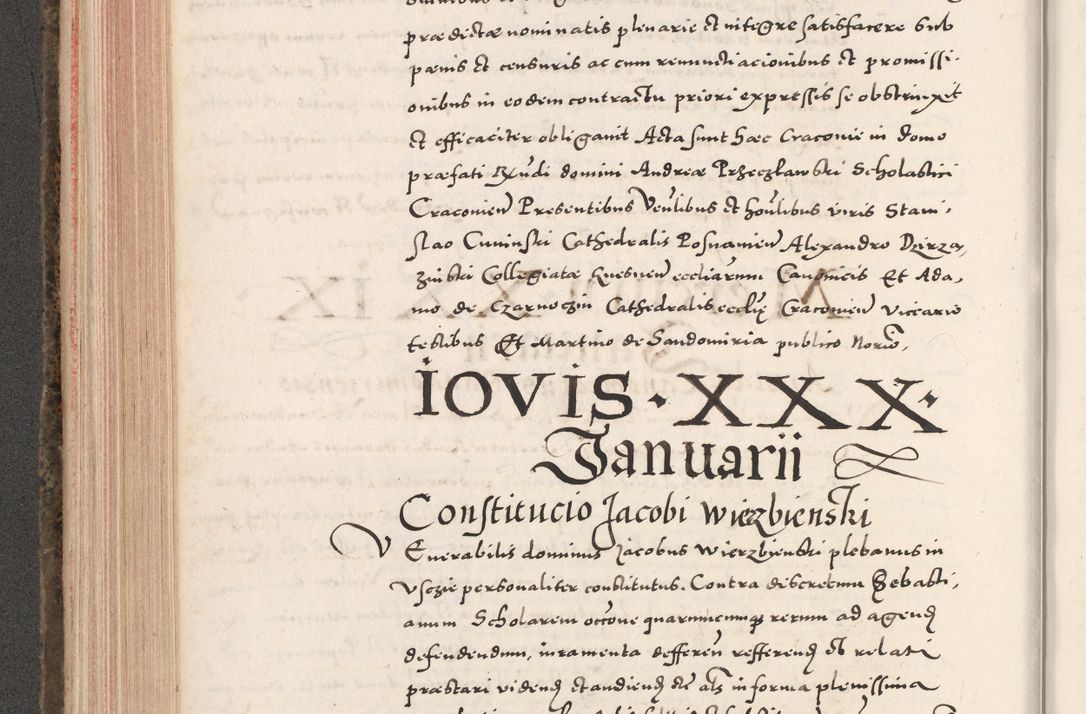 prædectæ nominatis plenarie et integre satisfacere sub
pœnis et censuris ac cum renuncti acionibus et promissi-
onibus in eodem contractu priori expressis se obstrinxit
et efficaciter obligauit Acta sunt hæc Cracouie in domo
præfati Rndi domini Andreæ Przeczławski Scholastici
Cracouien Presentibus Venlibus et honlibus viris Stani,
slao Cuninski Cathedralis Posnanien Alexandro Dzirza,
zinski Collegiatæ Gnesnen eccliarum Canonicis Et Ada,
mo de Czarnoczin Cathedralis ecclię Cracouien Viceario
testibus Et Martino de Sandomiria publico Norio,
IOVIS · XXX ·
Ianuarii
Constitucio Jacobi Wierzbienski
VEnerabilis dominus Jacobus Wierzbienski plebanus in
Vsczie personaliter constitutus. Contra discretum Sebasti,
anum Scholarem occōne quarumcumq rerum ad agend
defendendum, iuramenta defferen refferend et relati
præstari vidend et audiend etc als in forma plenissima